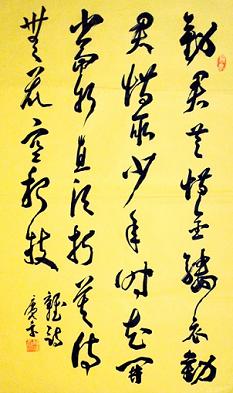 勸君莫惜金縷衣勸
君惜取少年時花開
當折直須折莫待
無花空折枝